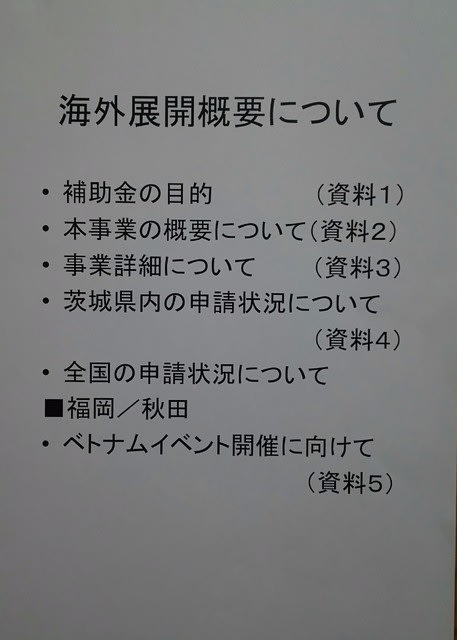 海外展開概要について
・ 補助金の目的 （資料１）
・ 本事業の概要について（資料２）
・ 事業詳細について （資料３）
・ 茨城県内の申請状況について
（資料４）
・ 全国の申請状況について
■福岡／秋田
・ ベトナムイベント開催に向けて
（資料５）